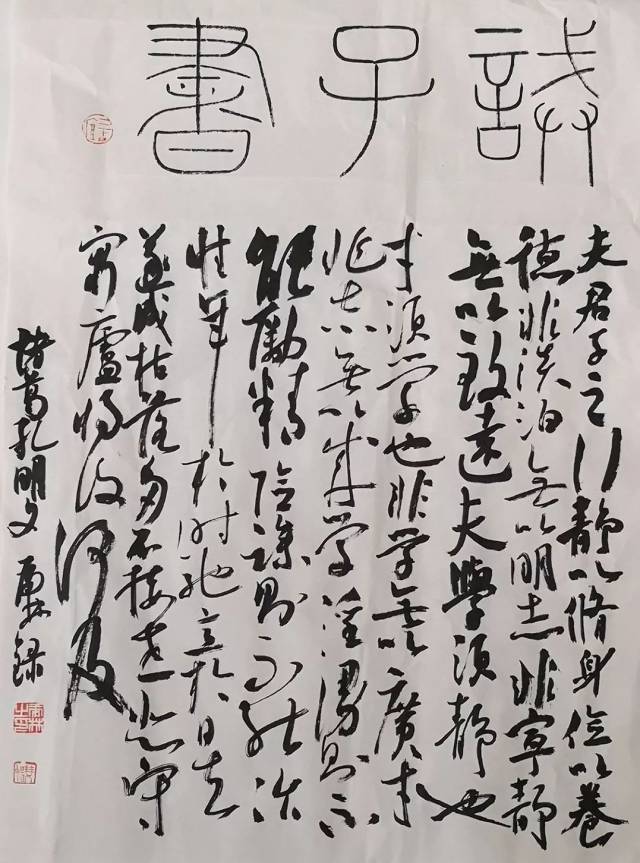 誡子書
夫君子之行静以脩身儉以養
德非淡泊無以明志非寧静
無以致遠夫學須静也
才須学也非学無以廣才
非志無以成学淫漫则不
能勵精險躁则不能治
性年於时馳意於日去
遂成枯落多不接世悲守
窮廬将復何及
諸葛孔明文 録